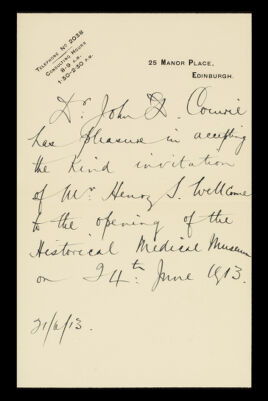 TELEPHONE NO 2038
CONSULTING HOURS
8-9 A.M.
1.30-2.30 P.M.
25 MANOR PLACE,
EDINBURGH.
Dr. John D. Comrie
has pleasure in accepting
the kind invitation
of Mr. Henry S. Wellcome
to the opening of the
Historical Medical Museum
on 24th. June 1913.
21/6/13.